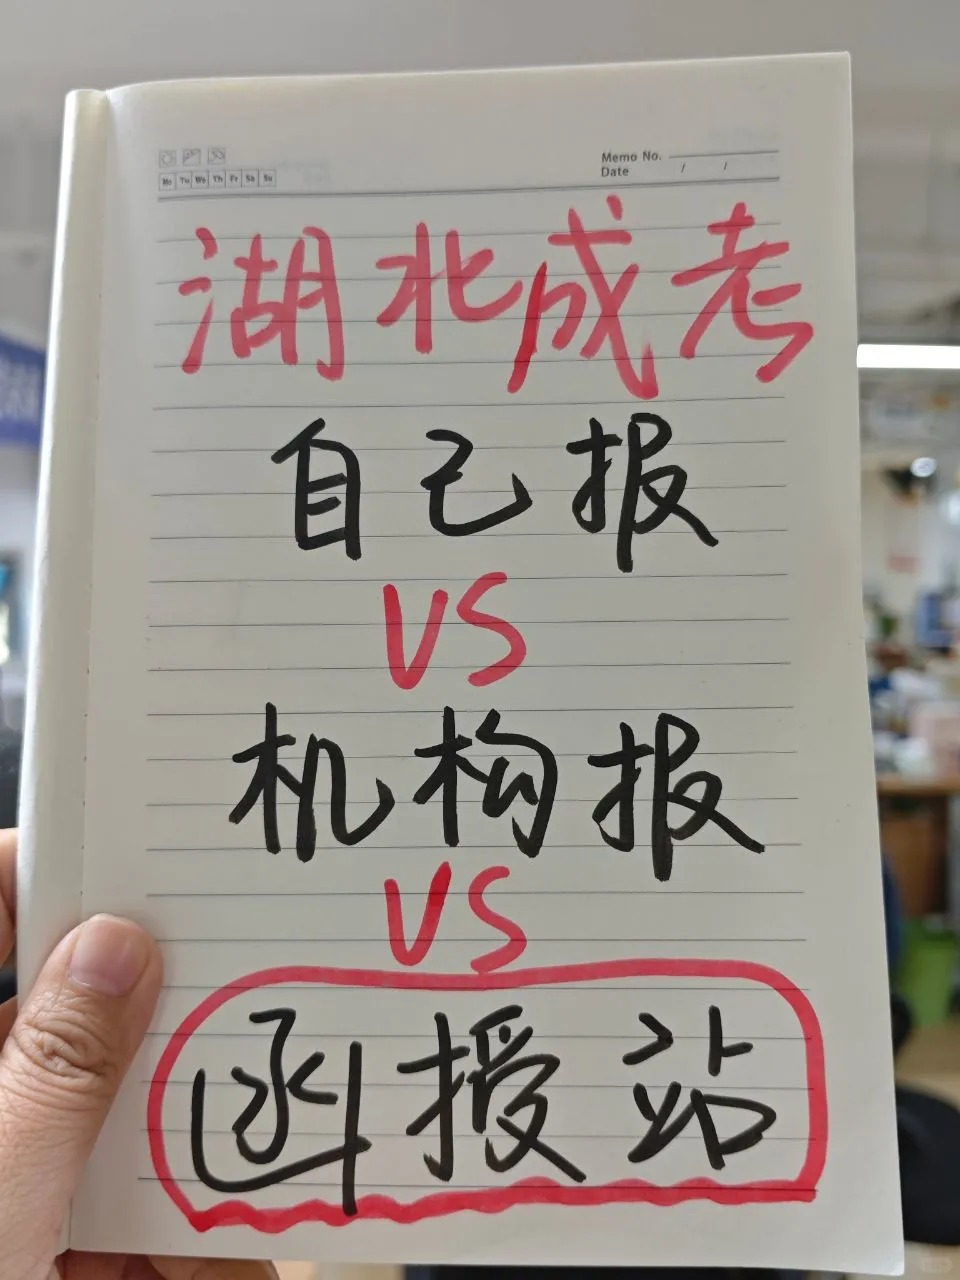 Memo No.
Mo Tu We Th Fr Sa Su
Date / /
湖北成考
自己报
VS
机构报
VS
函授站